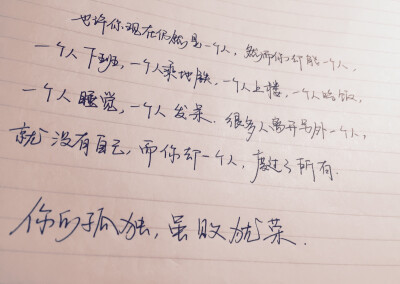 也许你现在仍然是一个人，然而你一个人，
一个人下班，一个人乘地铁，一个人上楼，一个人吃饭，
一个人睡觉，一个人发呆．很多人离开另外一个人，
就没有自己，而你却一个人，度过了所有．
你的孤独，虽败犹荣．